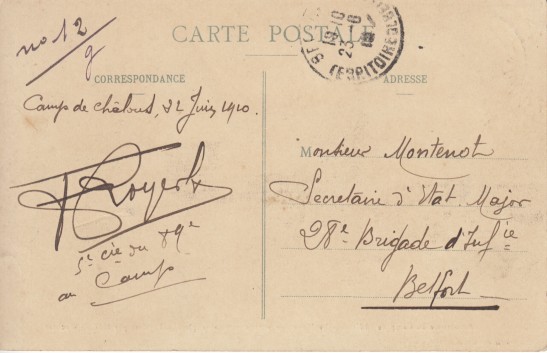 no 12
g
CARTE POSTALE
CORRESPONDANCE
ADRESSE
Camp de Châlons, 22 Juin 1910.
5e cie du 49e
au Camp
Monsieur Montenot
Secretaire d'Etat Major
28e Brigade d'Infie
Belfort
TERRITOIRE